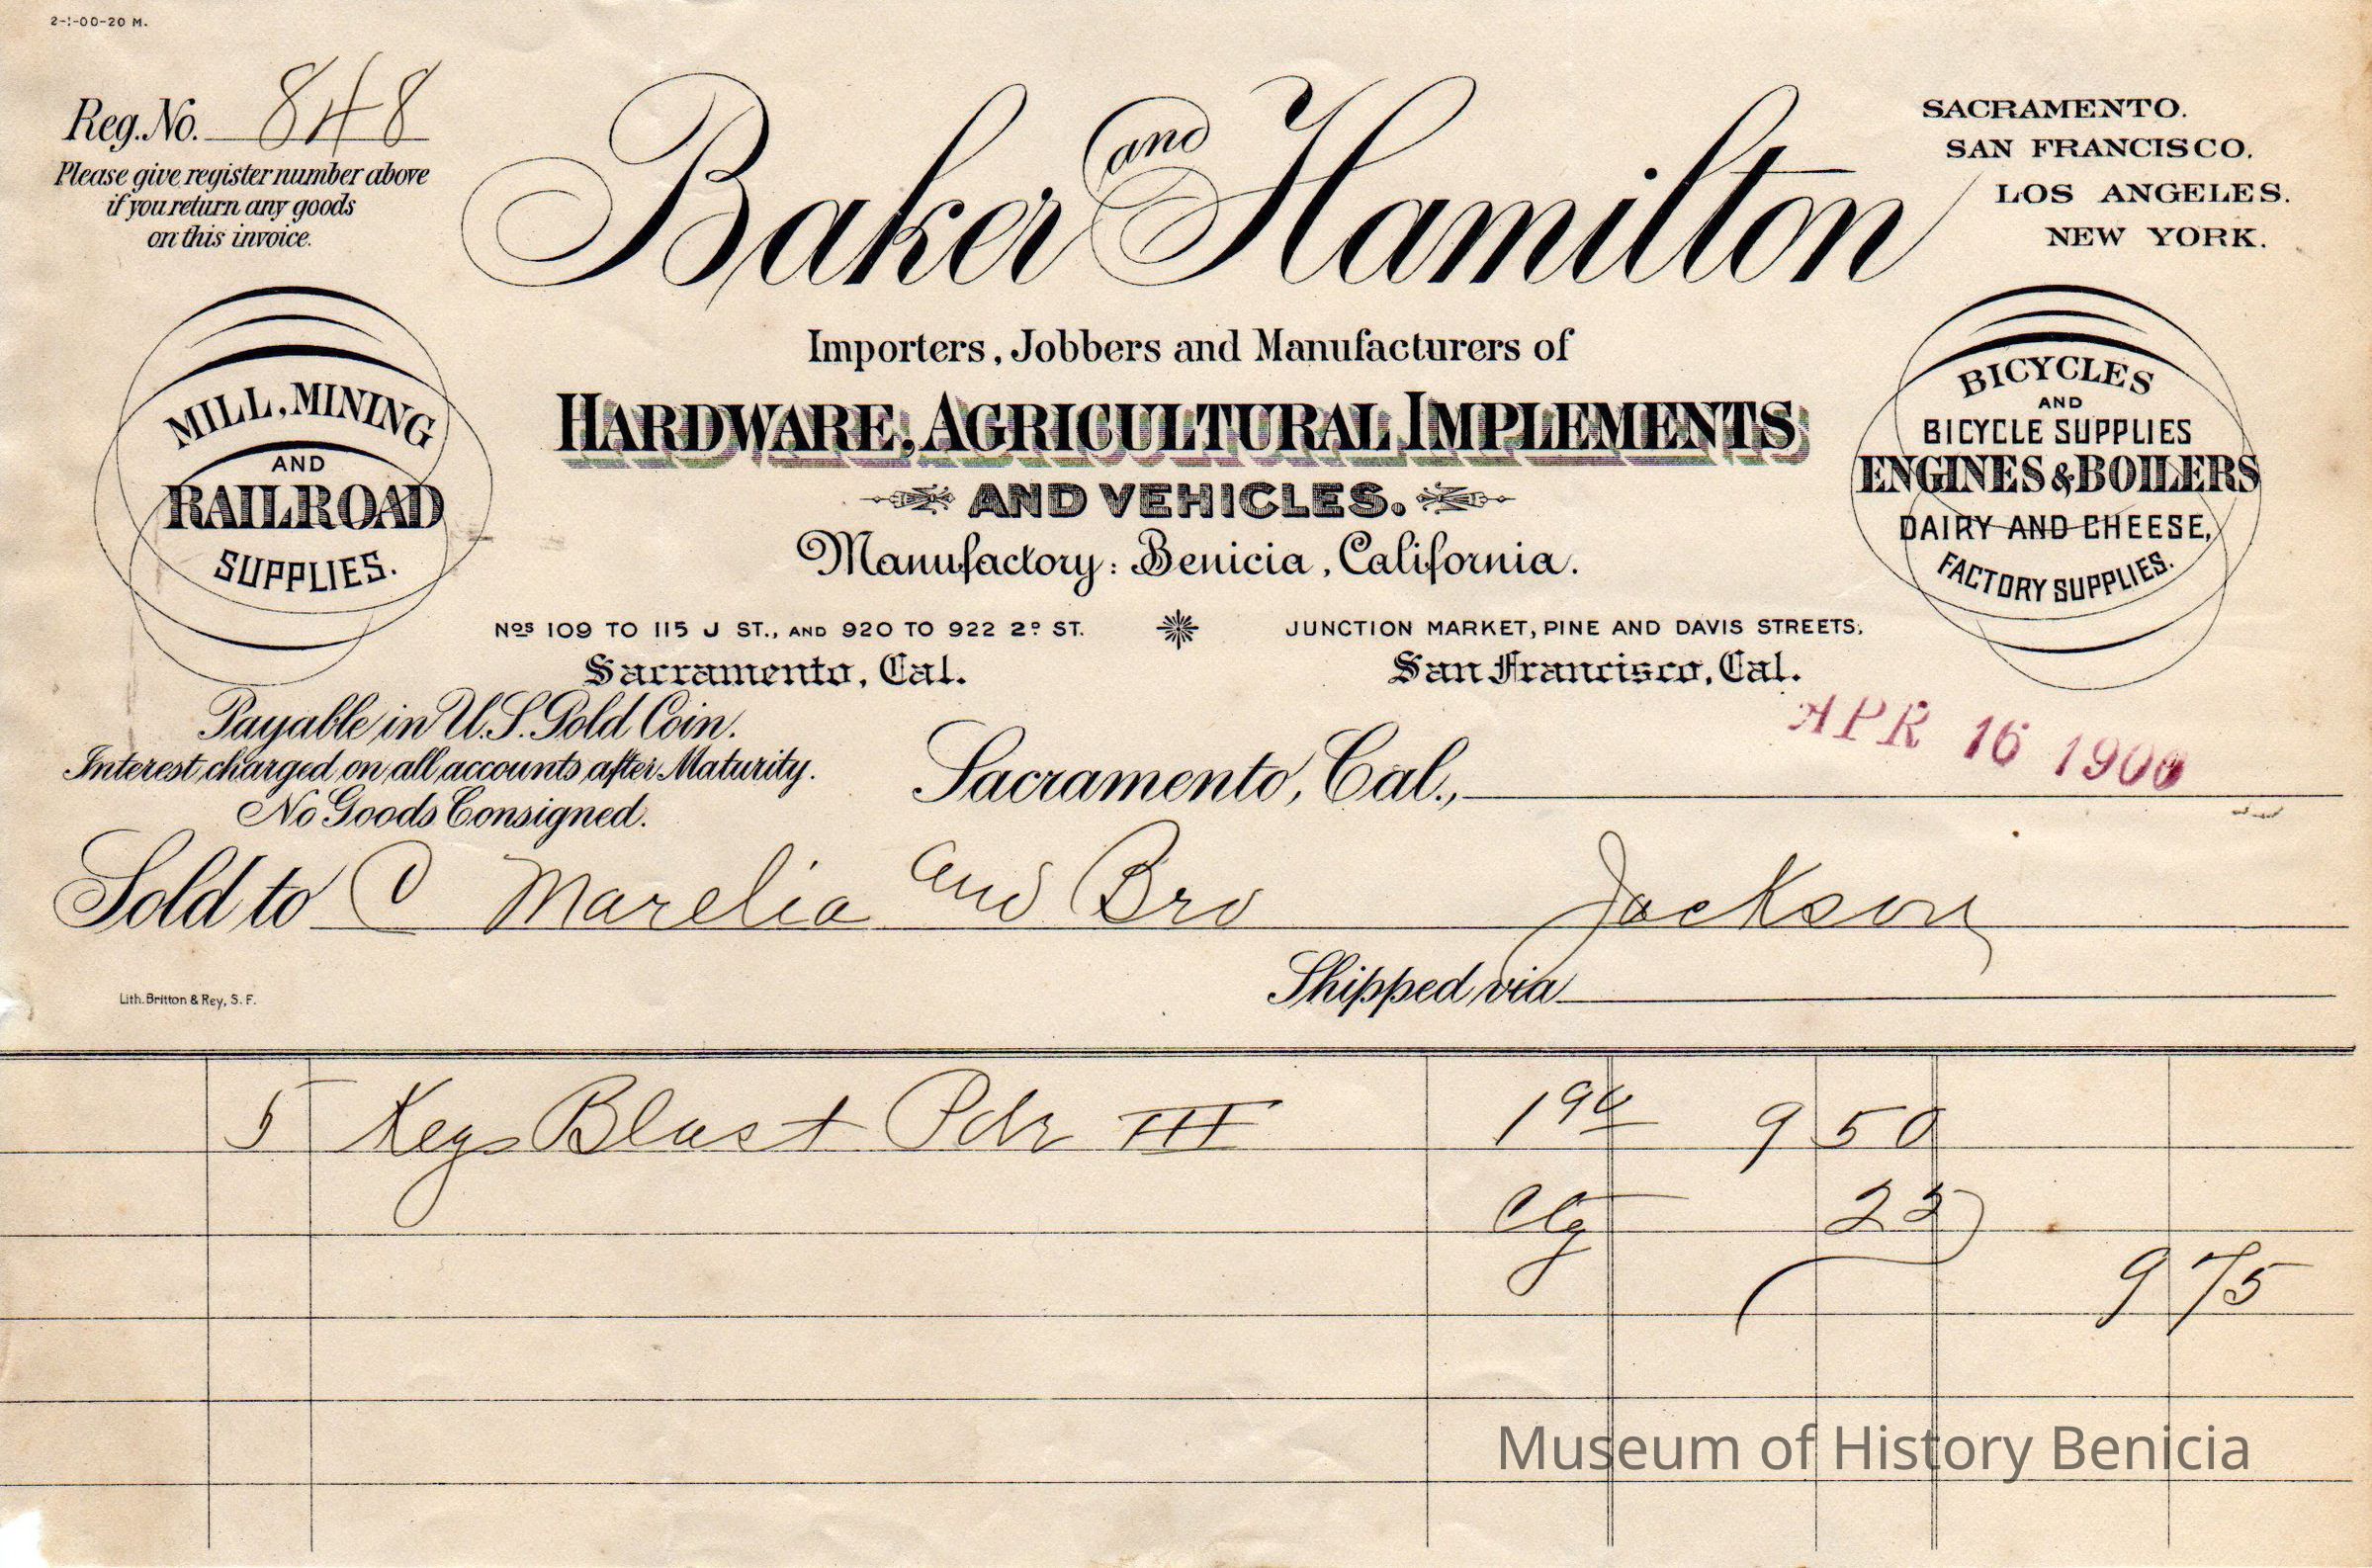 2-1-00-20 M.
Reg. No. 848
Please give register number above
if you return any goods
on this invoice.
Baker and Hamilton
SACRAMENTO.
SAN FRANCISCO.
LOS ANGELES.
NEW YORK.
MILL, MINING
AND
RAILROAD
SUPPLIES.
Importers, Jobbers and Manufacturers of
HARDWARE, AGRICULTURAL IMPLEMENTS
AND VEHICLES.
Manufactory: Benicia, California.
BICYCLES
AND
BICYCLE SUPPLIES
ENGINES & BOILERS
DAIRY AND CHEESE,
FACTORY SUPPLIES.
Nos 109 TO 115 J ST., AND 920 TO 922 2D ST.
Sacramento, Cal.
JUNCTION MARKET, PINE AND DAVIS STREETS.
San Francisco, Cal.
Payable in U.S. Gold Coin.
Interest charged on all accounts after Maturity.
No Goods Consigned.
Sacramento, Cal., APR 16 1900
Sold to C Marelia and Bro Jackson
Shipped via
Lith. Britton & Rey, S. F.
5 Kegs Blast Pdr III 9 50
Ctg
9 75
Museum of History Benicia